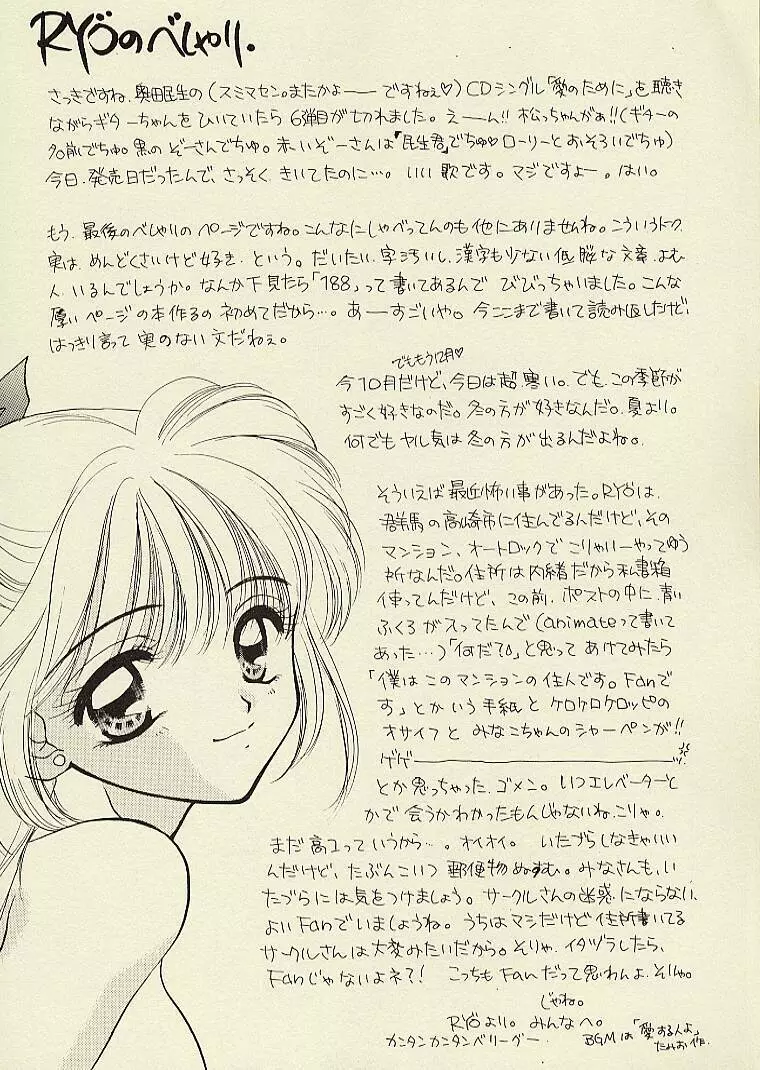 RYÖのべしゃり.
さっきですね、奥田民生の(スミマセン。またかよーー ですねぇ♡)CDシングル「愛のために」を聴き
ながらギターちゃんをひいていたら6弾目が切れました。えーん!! 松っちゃんがぁ!!(ギターの
名前でちゅ。黒のぞーさんでちゅ。赤いぞーさんは「民生君」でちゅ♡ローリーとおそろいでちゅ)
今日、発売日だったんで、さっそくきいてたのに…。いい歌です。マジですよー。はい。
もう、最後のべしゃりのページですね。こんなにしゃべってんのも他にありませんね。こういうトーク
実は、めんどくさいけど好き、という。だいたい、字汚いし、漢字も少ない低脳な文章、よむ
人、いるんでしょうか。なんか下見たら「188」って書いてあるんで びびっちゃいました。こんな
厚いページの本作るの初めてだから…。あーーすごいや。今ここまで書いて読み返したけど、
はっきり言って実のない文だねぇ。
でももう12月♡
今10月だけど、今日は超寒い。でも、この季節が
すごく好きなのだ。冬の方が好きなんだ。夏より。
何でもヤル気は冬の方が出るんだよね。
そういえば最近怖い事があった。RYÖは、
群馬の高崎市に住んでるんだけど、その
マンション、オートロックでこりゃいーやってゆう
所なんだ。住所は内緒だから私書箱
使ってんだけど、この前、ポストの中に青い
ふくろが入ってたんで(animateって書いて
あった…)「何だ?」と思ってあけてみたら
「僕はこのマンションの住人です。Fanで
す」とかいう手紙とケロケロケロッピの
オサイフとみなこちゃんのシャーペンが!!
ゲゲーーー
とか思っちゃった、ゴメン。いつエレベーターと
かで会うかわかったもんじゃないね、こりゃ。
まだ高1っていうから…。オイオイ。いたづらしなきゃいい
んだけど、たぶんこいつ郵便物ぬすむ。みなさんも、い
たづらには気をつけましょう。サークルさんの迷惑にならない、
よいFanでいましょうね。うちはマシだけど住所書いてる
サークルさんは大変みたいだから。そりゃ、イタヅラしたら、
Fanじゃないよネ?! こっちもFanだって思わんよ、そりゃ。
じゃね。
RYÖより。みんなへ。
カンタンカンタンベリーグー. BGMは「愛する人よ」
たみお作.